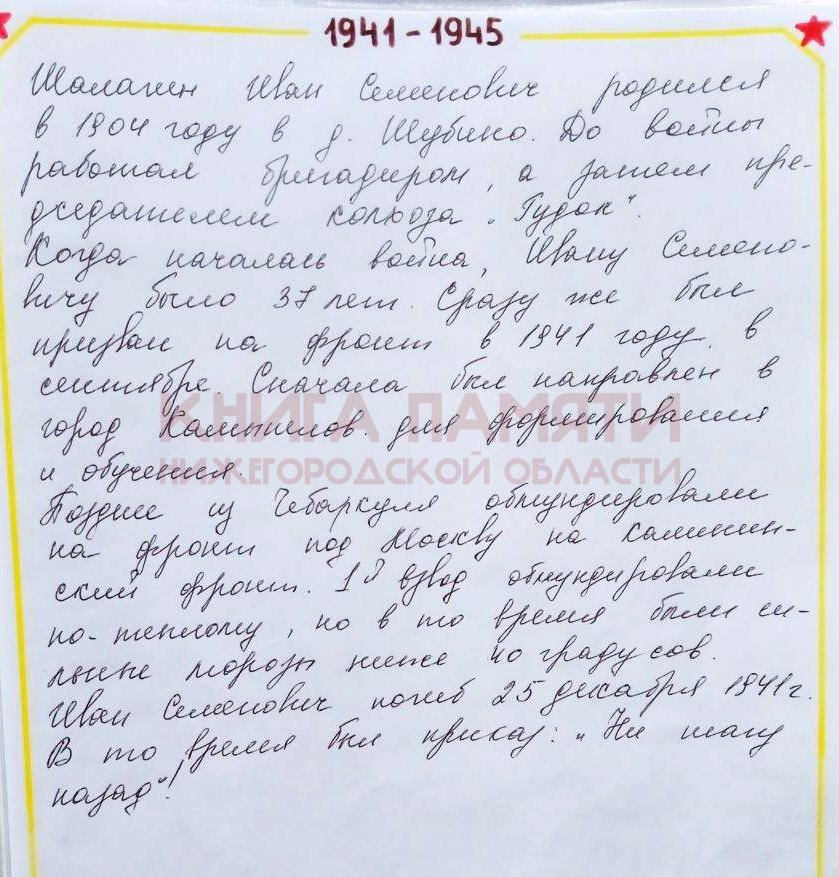 1941 - 1945
Шалагин Иван Семенович родился
в 1904 году в д. Шубино. До войны
работал бригадиром, а затем пре-
дседателем колхоза „Гудок".
Когда началась война, Ивану Семено-
вичу было 37 лет. Сразу же был
призван на фронт в 1941 году, в
сентябре. Сначала был направлен в
город Камышлов для формирования
и обучения.
КНИГА ПАМЯТИ
НИЖЕГОРОДСКОЙ ОБЛАСТИ
Позднее из Чебаркуля обмундировали
на фронт под Москву на Калинин-
ский фронт. 1й взвод обмундировали
по-теплому, но в то время были си-
льные морозы ниже 40 градусов.
Иван Семенович погиб 25 декабря 1941 г.
В то время был приказ: „Ни шагу
назад"!